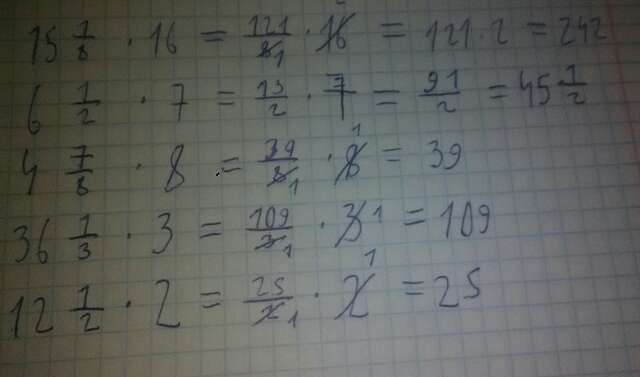 15 1/8 · 16 = 121/8 1 · 16 2 = 121 · 2 = 242
6 1/2 · 7 = 13/2 · 7 = 91/2 = 45 1/2
4 7/8 · 8 = 39/8 1 · 8 1 = 39
36 1/3 · 3 = 109/3 1 · 3 1 = 109
12 1/2 · 2 = 25/2 1 · 2 1 = 25